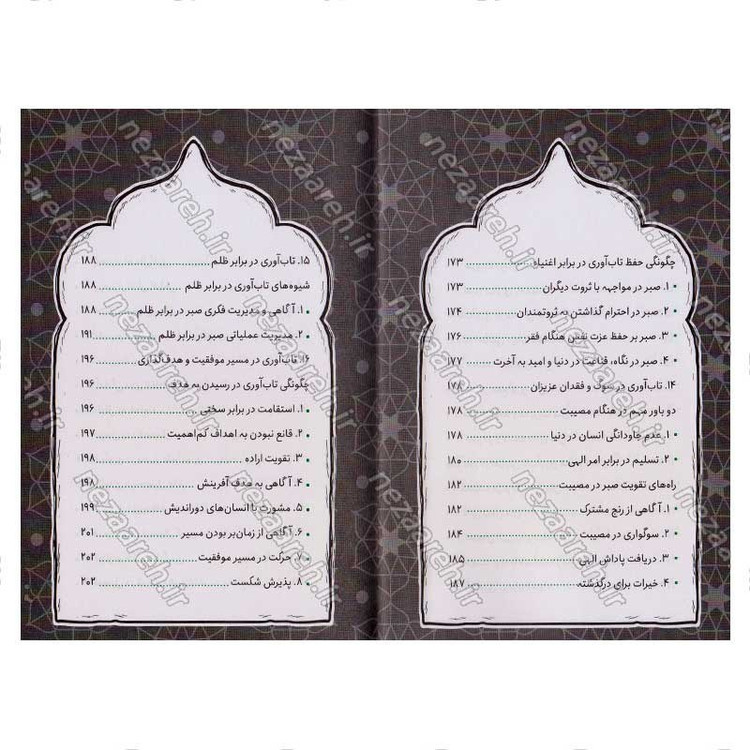 چگونگی حفظ تاب‌آوری در برابر اغنیاء ۱۷۳
• ۱. صبر در مواجهه با ثروت دیگران ۱۷۳
• ۲. صبر در احترام گذاشتن به ثروتمندان ۱۷۴
• ۳. صبر بر حفظ عزت نفس هنگام فقر ۱۷۶
• ۴. صبر در نگاه، قناعت در دنیا و امید به آخرت ۱۷۷
۱۴. تاب‌آوری در سوگ و فقدان عزیزان ۱۷۸
دو باور مهم در هنگام مصیبت ۱۷۸
• ۱. عدم جاودانگی انسان در دنیا ۱۷۸
• ۲. تسلیم در برابر امر الهی ۱۸۰
راه‌های تقویت صبر در مصیبت ۱۸۲
• ۱. آگاهی از رنج مشترک ۱۸۲
• ۲. سوگواری در مصیبت ۱۸۴
• ۳. دریافت پاداش الهی ۱۸۵
• ۴. خیرات برای درگذشته ۱۸۷
۱۵. تاب‌آوری در برابر ظلم ۱۸۸
شیوه‌های تاب‌آوری در برابر ظلم ۱۸۸
• ۱. آگاهی و مدیریت فکری صبر در برابر ظلم ۱۸۸
• ۲. مدیریت عملیاتی صبر در برابر ظلم ۱۹۱
۱۶. تاب‌آوری در مسیر موفقیت و هدف‌گذاری ۱۹۶
چگونگی تاب‌آوری در رسیدن به هدف ۱۹۶
• ۱. استقامت در برابر سختی ۱۹۶
• ۲. قانع نبودن به اهداف کم‌اهمیت ۱۹۷
• ۳. تقویت اراده ۱۹۸
• ۴. آگاهی به هدف آفرینش ۱۹۸
• ۵. مشورت با انسان‌های دوراندیش ۱۹۹
• ۶. آگاهی از زمان‌بر بودن مسیر ۲۰۱
• ۷. حرکت در مسیر موفقیت ۲۰۲
• ۸. پذیرش شکست ۲۰۲
nezaareh.ir